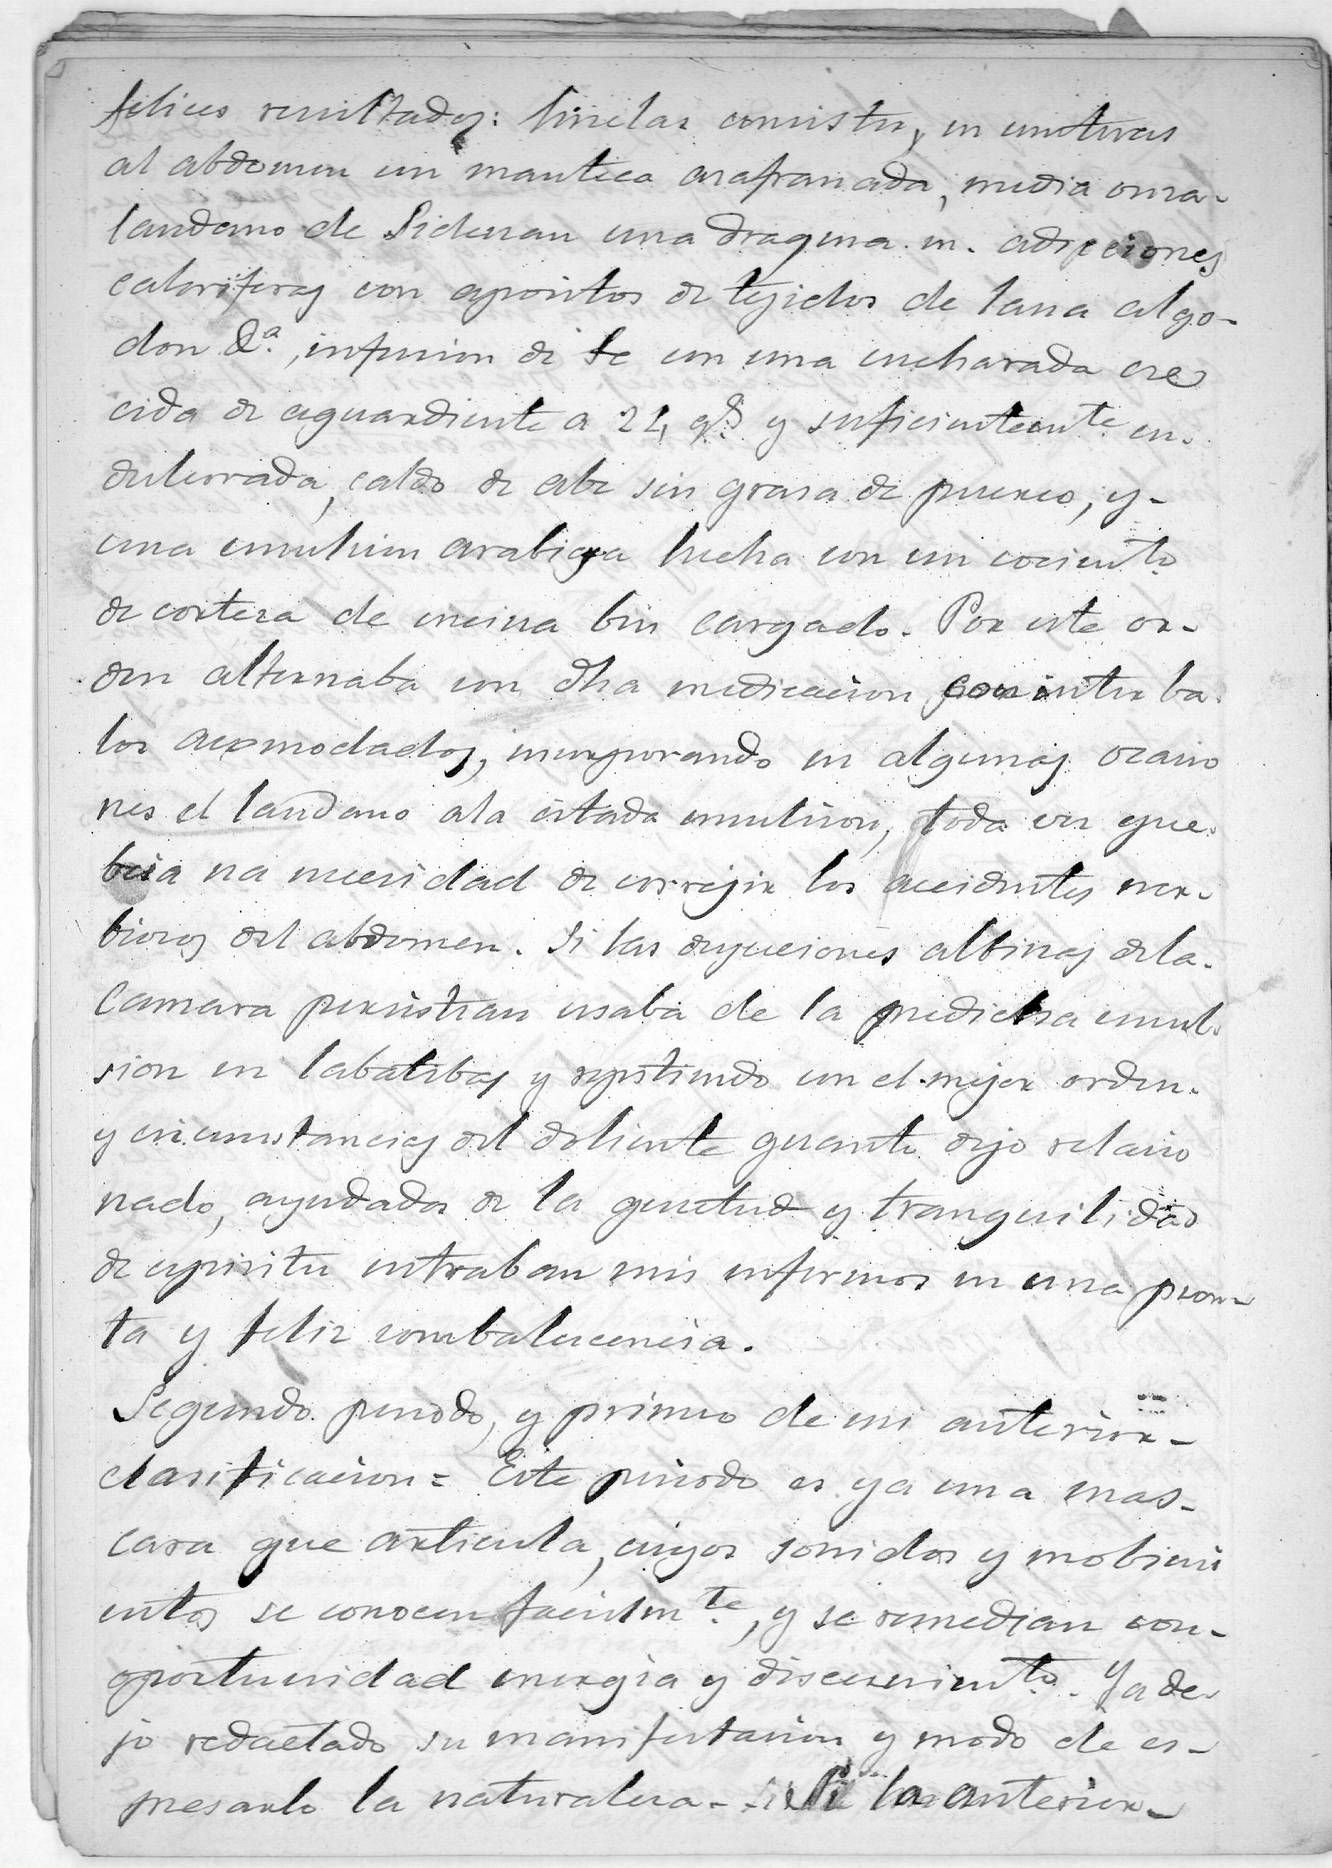 felices resultados: hicelas consistir, en unturas
al abdomen con manteca azafranada, media onza-
laudano de Sidenan una dragma. m. adicciones
caloriferas con apositos de tejidos de lana algo-
don &ª., infusion de te con una cucharada cre
cida de aguardiente a 22, gs. y suficientemte. en-
dulzorada, caldo de abe sin grasa de puerco, y-
una emulsion arabiga hecha con un cocimto.
de corteza de encina bien cargado. Por este or-
den alternaba con dha medicacion con interba-
los acomodados, incorporando en algunas ocacio
nes el laudano ala citada emulsion, toda vez que
beia na necesidad de correjir los accidentes ner-
biosos del abdomen. Si las deyeciones albinas dela-
Camara persistian usaba de la predicha emul-
sion en labatibas y repitiendo con el mejor orden-
y circunstancias del doliente quanto dejo relacio
nado, ayudados de la quietud y tranquilidad
de espiritu entraban mis enfermos en una pron-
ta y feliz combalecencia.
Segundo periodo, y primero de mi anterior-
clasificacion = Este periodo es ya una mas-
cara que articula, cuyos sonidos y mobimi
entos se conocen facilmte., y se remedian con-
oportunidad energia y discernimto. Ya de-
jo redactado su manifestacion y modo de es-
presarlo la naturaleza - Si la anterior-